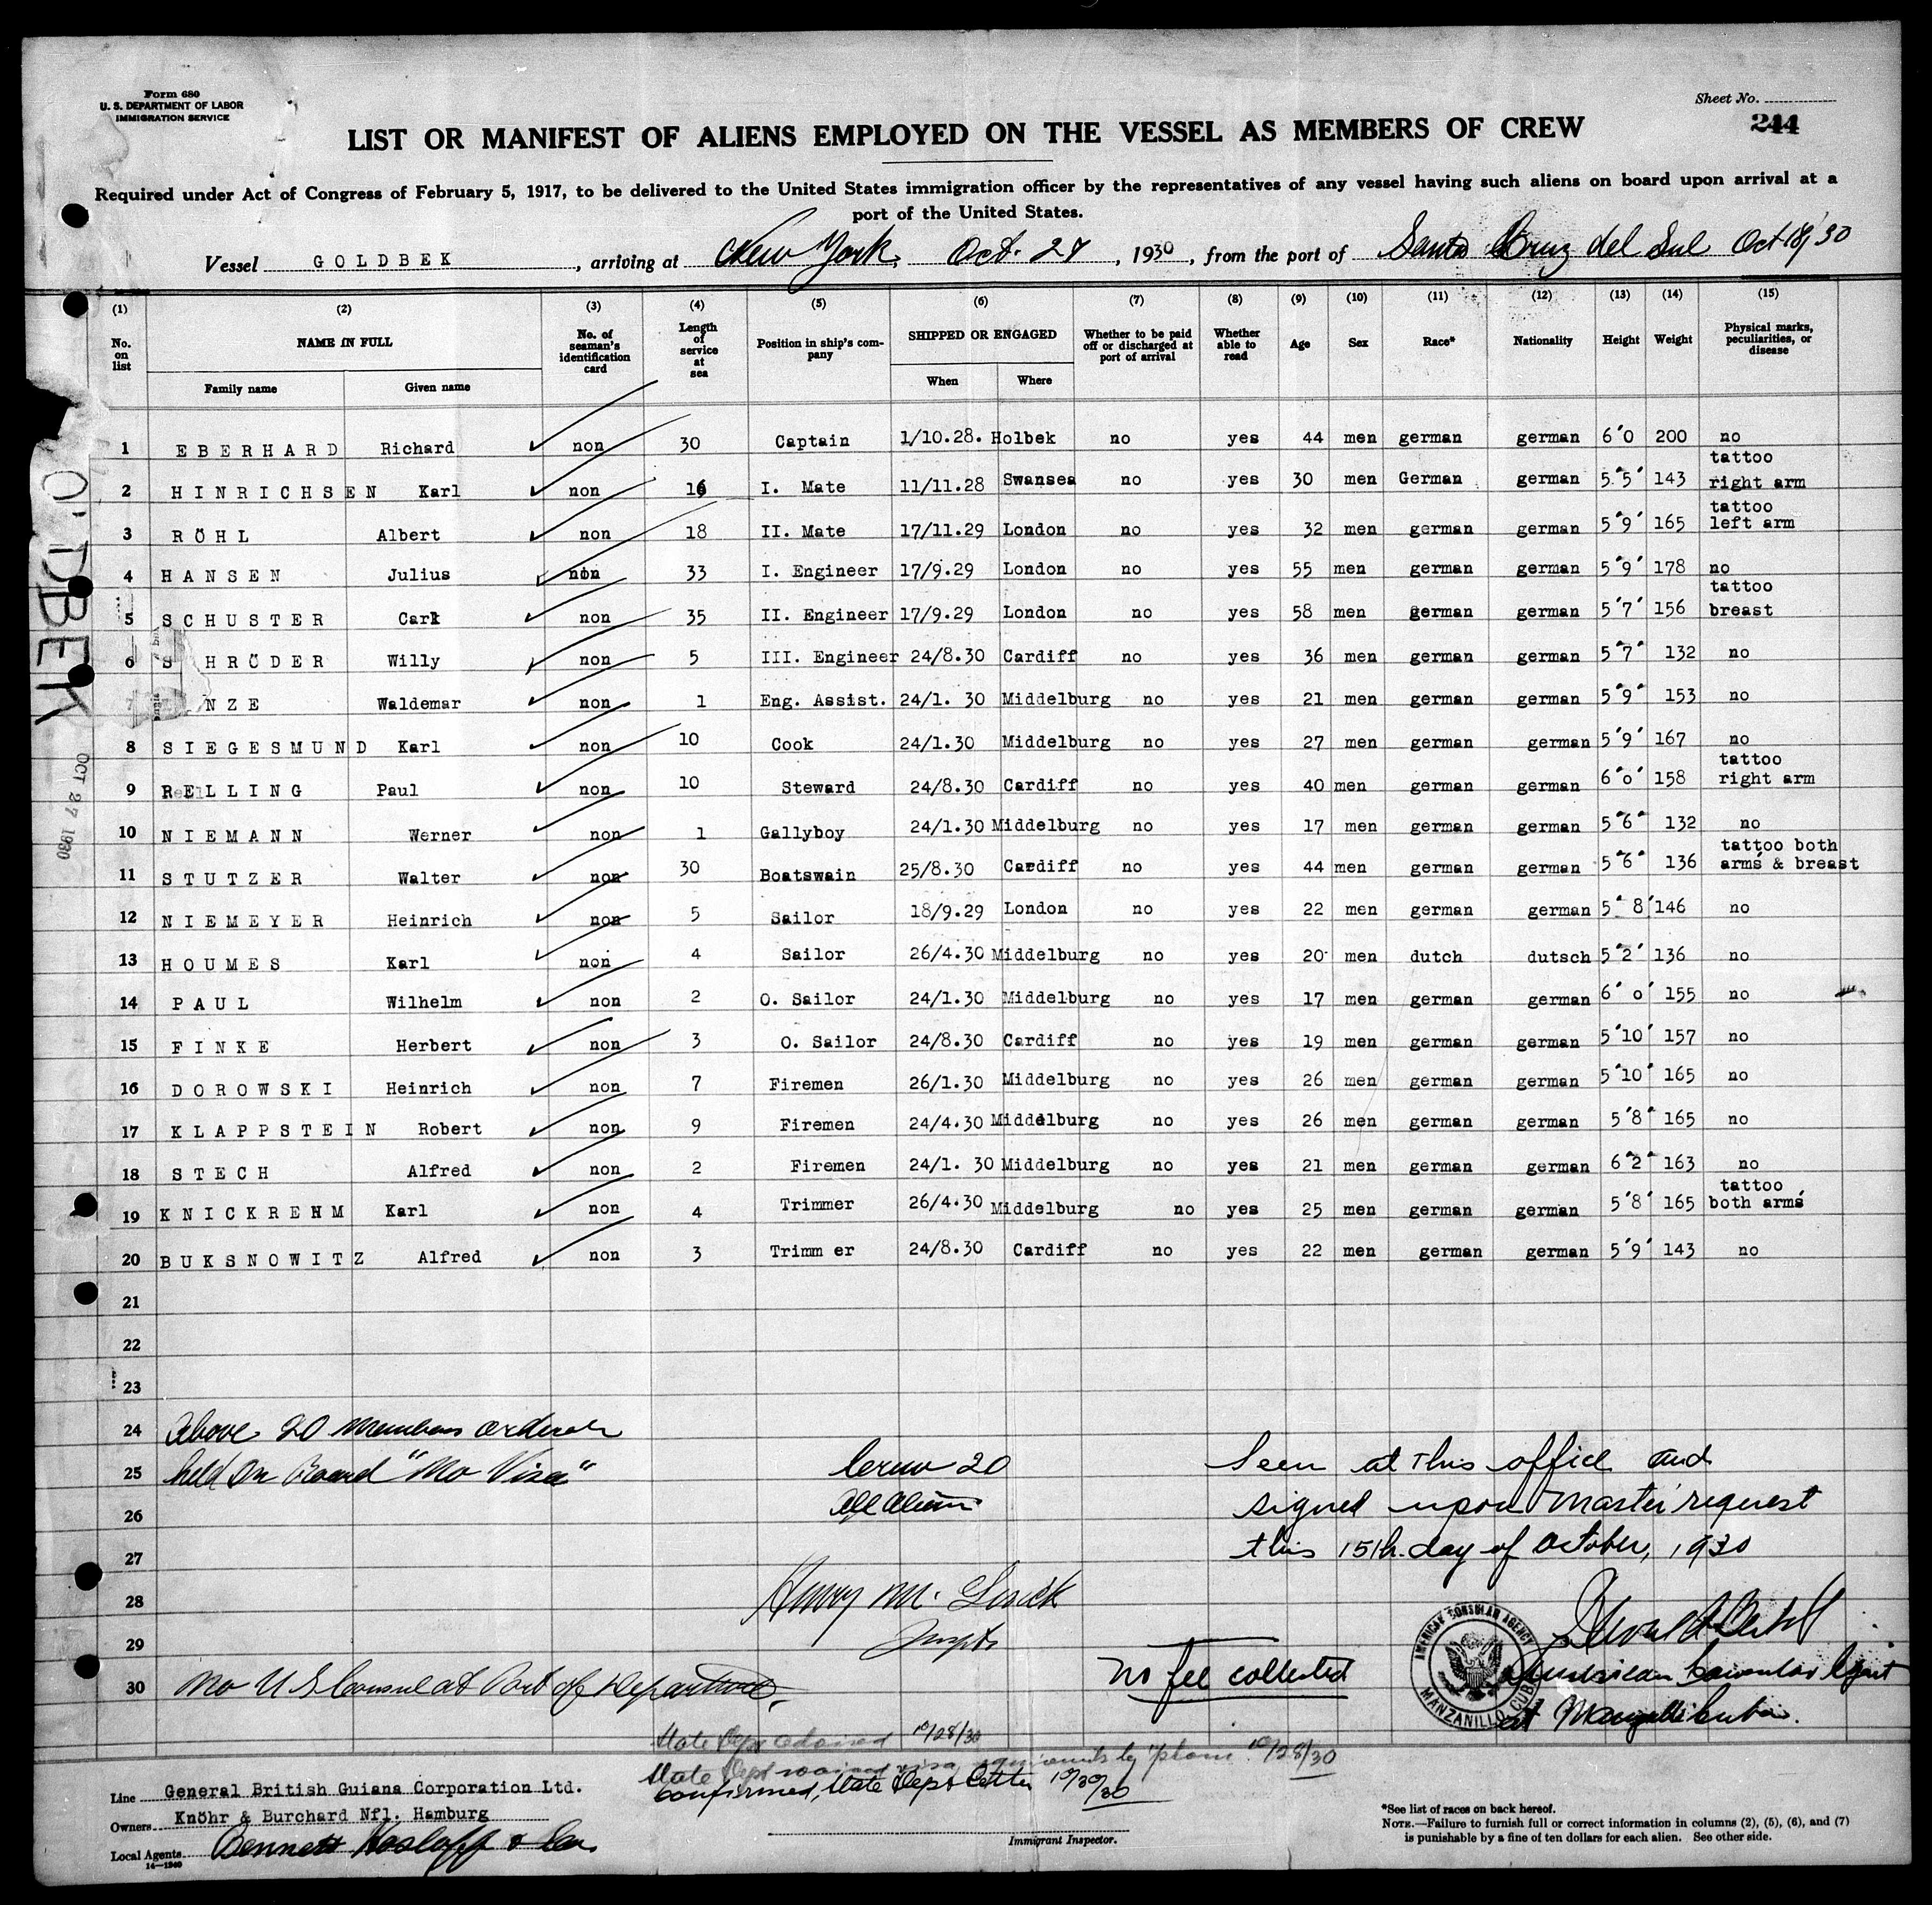 Form 680
U. S. DEPARTMENT OF LABOR
IMMIGRATION SERVICE
Sheet No.
244
LIST OR MANIFEST OF ALIENS EMPLOYED ON THE VESSEL AS MEMBERS OF CREW
Required under Act of Congress of February 5, 1917, to be delivered to the United States immigration officer by the representatives of any vessel having such aliens on board upon arrival at a
port of the United States.
Vessel GOLDBEK, arriving at New York, Oct. 27, 1930, from the port of Santa Cruz del Sul Oct 18/30
(1) (2) (3) (4) (5) (6) (7) (8) (9) (10) (11) (12) (13) (14) (15)
No. on list NAME IN FULL No. of seaman's identification card Length of service at sea Position in ship's company SHIPPED OR ENGAGED Whether to be paid off or discharged at port of arrival Whether able to read Age Sex Race* Nationality Height Weight Physical marks, peculiarities, or disease
Family name Given name When Where
1 EBERHARD Richard non 30 Captain 1/10.28. Holbek no yes 44 men german german 6'0 200 no
2 HINRICHSEN Karl non 16 I. Mate 11/11.28 Swansea no yes 30 men German german 5"5' 143 tattoo right arm
3 RÖHL Albert non 18 II. Mate 17/11.29 London no yes 32 men german german 5"9' 165 tattoo left arm
4 HANSEN Julius non 33 I. Engineer 17/9.29 London no yes 55 men german german 5"9' 178 no
5 SCHUSTER Carl non 35 II. Engineer 17/9.29 London no yes 58 men german german 5"7' 156 tattoo breast
6 S HRÖDER Willy non 5 III. Engineer 24/8.30 Cardiff no yes 36 men german german 5"7" 132 no
7 NZE Waldemar non 1 Eng. Assist. 24/1. 30 Middelburg no yes 21 men german german 5"9" 153 no
8 SIEGESMUND Karl non 10 Cook 24/1.30 Middelburg no yes 27 men german german 5"9' 167 no
9 RELLING Paul non 10 Steward 24/8.30 Cardiff no yes 40 men german german 6"0' 158 tattoo right arm
10 NIEMANN Werner non 1 Gallyboy 24/1.30 Middelburg no yes 17 men german german 5"6" 132 no
11 STUTZER Walter non 30 Boatswain 25/8.30 Cardiff no yes 44 men german german 5"6" 136 tattoo both arms & breast
12 NIEMEYER Heinrich non 5 Sailor 18/9.29 London no yes 22 men german german 5" 8' 146 no
13 HOUMES Karl non 4 Sailor 26/4.30 Middelburg no yes 20 men dutch dutsch 5"2' 136 no
14 PAUL Wilhelm non 2 O. Sailor 24/1.30 Middelburg no yes 17 men german german 6' 0' 155 no
15 FINKE Herbert non 3 O. Sailor 24/8.30 Cardiff no yes 19 men german german 5"10' 157 no
16 DOROWSKI Heinrich non 7 Firemen 26/1.30 Middelburg no yes 26 men german german 5"10' 165 no
17 KLAPPSTEIN Robert non 9 Firemen 24/4.30 Middelburg no yes 26 men german german 5'8" 165 no
18 STECH Alfred non 2 Firemen 24/1. 30 Middelburg no yes 21 men german german 6"2" 163 no
19 KNICKREHM Karl non 4 Trimmer 26/4.30 Middelburg no yes 25 men german german 5'8' 165 tattoo both arms
20 BUKSNOWITZ Alfred non 3 Trimm er 24/8.30 Cardiff no yes 22 men german german 5'9' 143 no
21
22
23
24 Above 20 members ordered
25 held on Board "No Visa"
Crew 20
All Aliens
Seen at this office and
26 signed upon Master request
27 this 15th. day of October, 1930
28 Henry M.
29 Inspts
30 No U S Consul at Port of Departure.
No fee collected
AMERICAN CONSULAR AGENCY
MANZANILLO, CUBA
American Consular Agent
at Manzanillo Cuba.
State Dept advised 10/28/30
State Dept waived visa requirements by 'phone 10/28/30
Confirmed, State Dept letter 10/30/30
Line General British Guiana Corporation Ltd.
Owners Knöhr & Burchard Nfl. Hamburg
Local Agents Bennett & Co.
14—1240
Immigrant Inspector.
*See list of races on back hereof.
NOTE.—Failure to furnish full or correct information in columns (2), (5), (6), and (7)
is punishable by a fine of ten dollars for each alien. See other side.
OLDBEK
OCT 27 1930